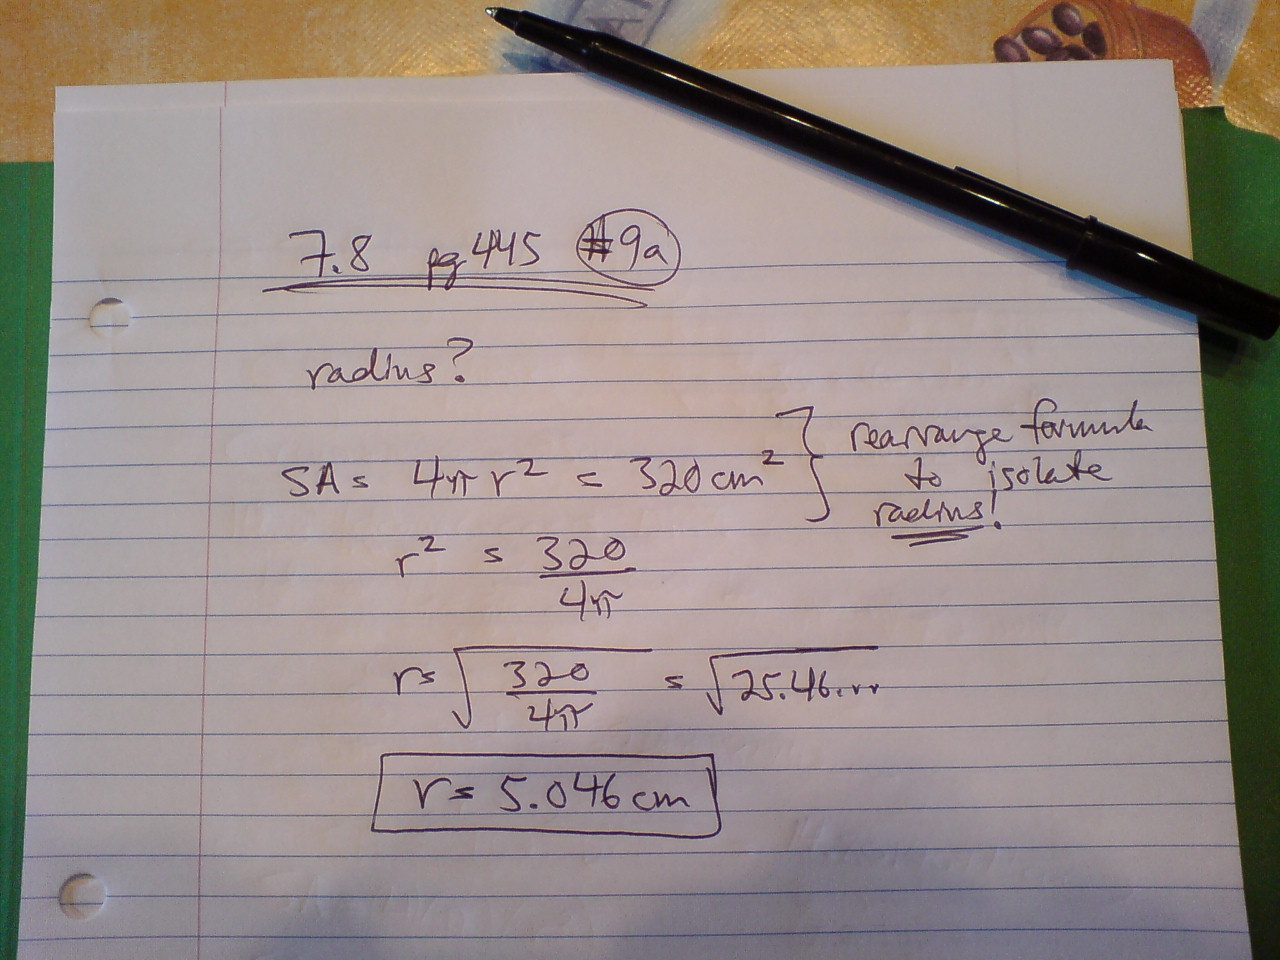 7.8 pg445 #9a
radius?
SA = 4πr² = 320cm² } rearrange formula
to isolate
radius!
r² = 320/4π
r = √(320/4π) = √25.46...
r = 5.046cm